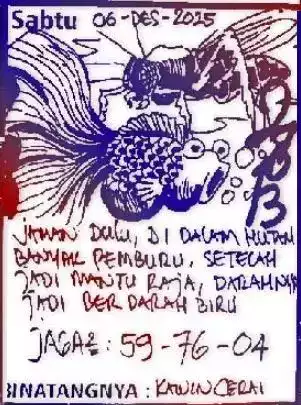 Sabtu 06-DES-2025
JAMAN DULU, DI DALAM HUTAN
BANYAK PEMBURU, SETELAH
JADI MANTU RAJA, DARAHNYA
JADI BERDARAH BIRU
JAGA2: 59-76-04
BINATANGNYA : KAWIN CERAI